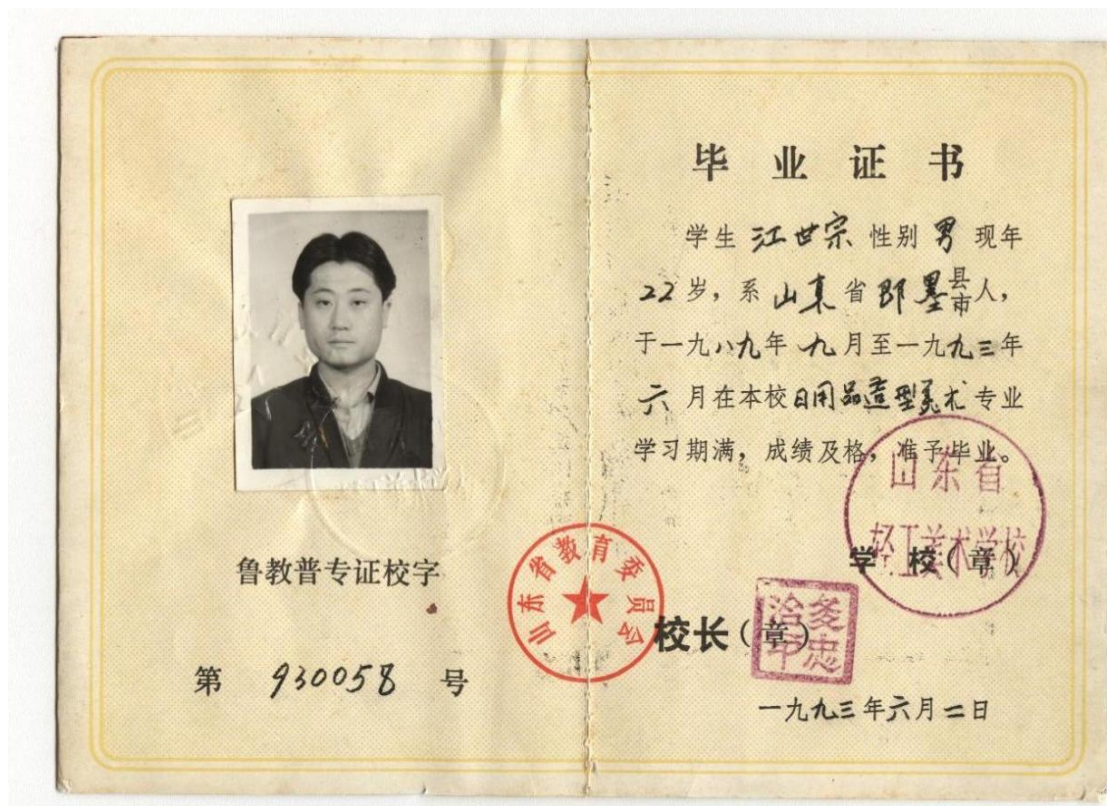 鲁教普专证校字
第 930058 号
山东省教育委员会
毕业证书
学生 江世宗 性别 男 现年
22 岁，系 山东 省 即墨 县市 人，
于一九八九年 九 月至一九九三年
六 月在本校 日用品造型美术 专业
学习期满，成绩及格，准予毕业。
山东省
轻工美术学校
学 校（章）
校长（章）
一九九三年六月二日